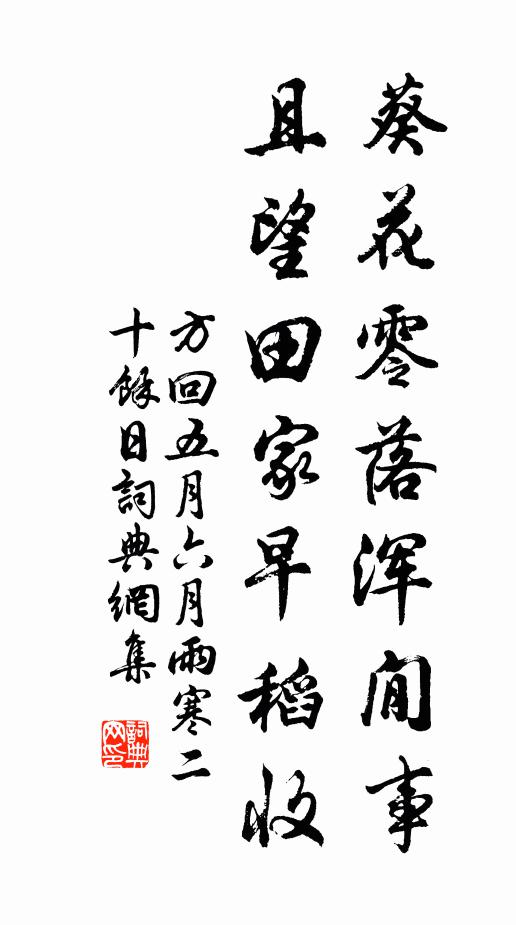 葵花零落浑閒事
且望田家早稻收
方回五月六月雨寒二
十餘日詞典網集
詞典
网印